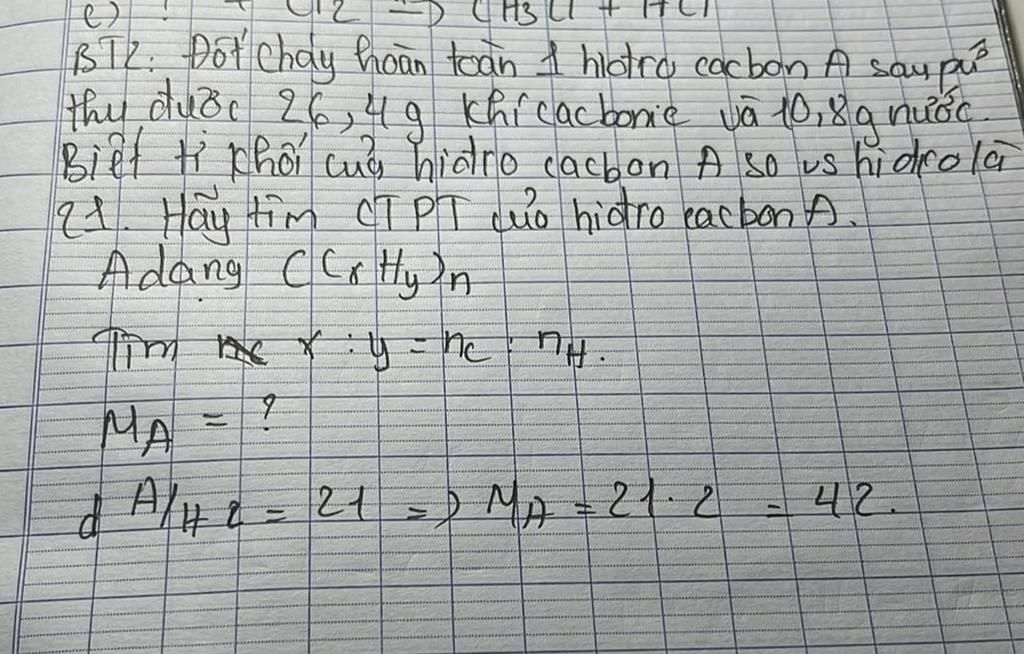 c) ? + Cl2 => CH3Cl + HCl
BT2: Đốt cháy hoàn toàn 1 hiđro cacbon A sau pứ
thu được 26,4g khí cacbonic và 10,8g nước.
Biết tỉ khối của hiđro cacbon A so vs hiđro là
21. Hãy tìm CTPT của hiđro cacbon A.
A dạng (CxHy)n
Tìm x : y = nC : nH.
MA = ?
d A/H2 = 21 => MA = 21.2 = 42.